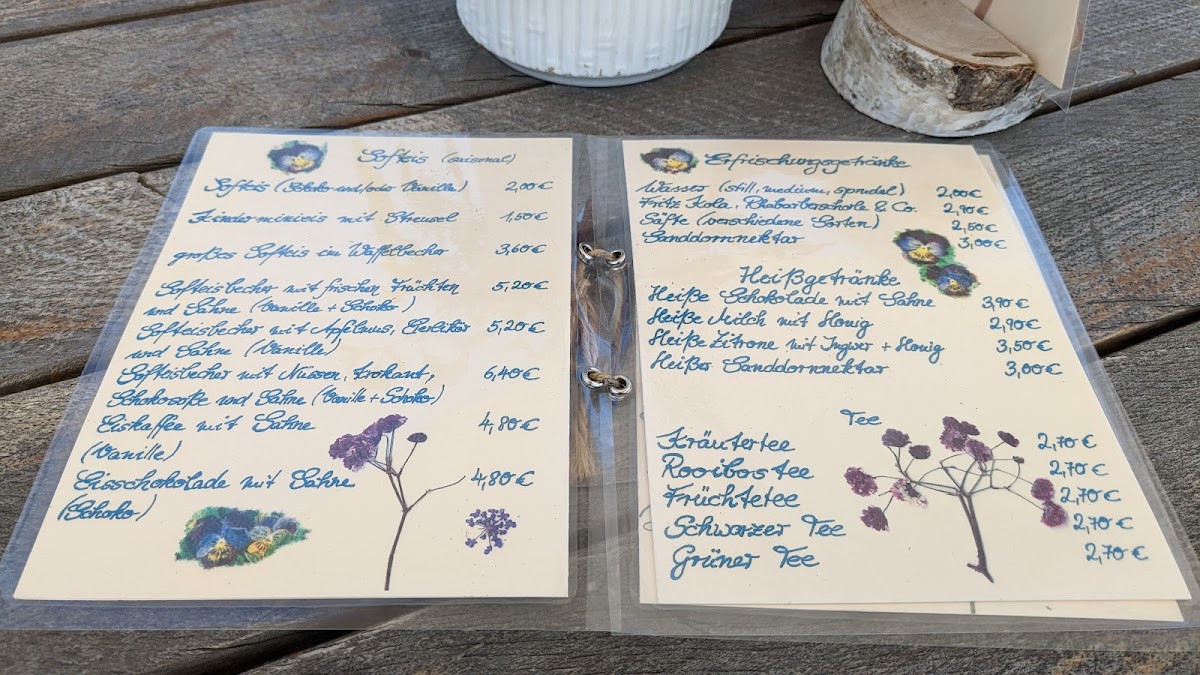 Softeis (saisonal)
Softeis (Schoko- und/oder Vanille) 2,00 €
Kinderminieis mit Streusel 1,50 €
großes Softeis im Waffelbecher 3,60 €
Softeisbecher mit frischen Früchten 5,20 €
und Sahne (Vanille + Schoko-)
Softeisbecher mit Apfelmus, Eierlikör 5,20 €
und Sahne (Vanille)
Softeisbecher mit Nüssen, Krokant, 6,40 €
Schokosoße und Sahne (Vanille + Schoko-)
Eiskaffee mit Sahne 4,80 €
(Vanille)
Eisschokolade mit Sahne 4,80 €
(Schoko-)
Erfrischungsgetränke
Wasser (still, medium, sprudel) 2,00 €
Fritz Kola, Rhabarberschole & Co. 2,90 €
Säfte (verschiedene Sorten) 2,50 €
Sanddornnektar 3,00 €
Heißgetränke
Heiße Schokolade mit Sahne 3,90 €
Heiße Milch mit Honig 2,90 €
Heiße Zitrone mit Ingwer + Honig 3,50 €
Heißer Sanddornnektar 3,00 €
Tee
Kräutertee 2,70 €
Rooibostee 2,70 €
Früchtetee 2,70 €
Schwarzer Tee 2,70 €
Grüner Tee 2,70 €